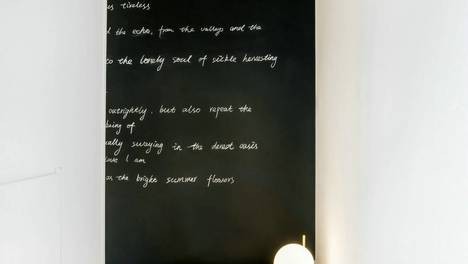 as tireless
d the echo, from the valleys and the
to the lonely soul of sickle harvesting
outrightly, but also repeat the
being of
ually swaying in the desert oasis
love I am
as the bright summer flowers